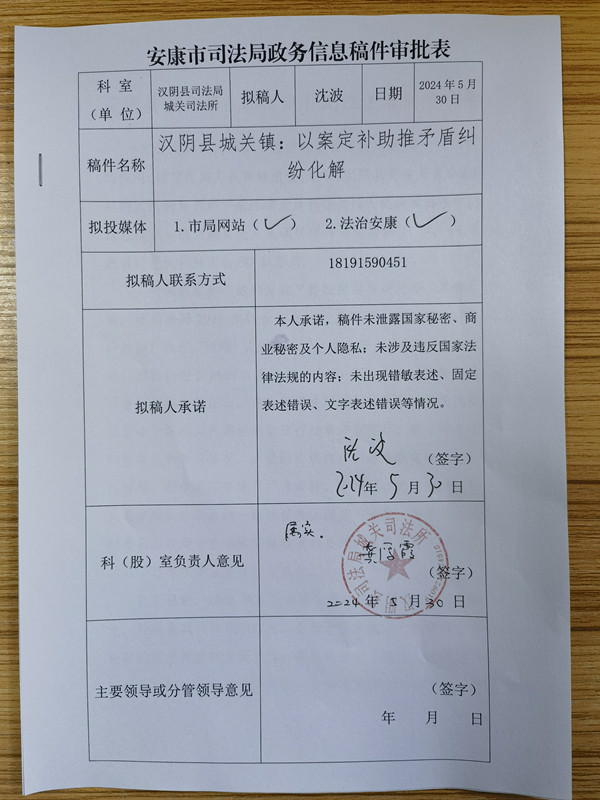 安康市司法局政务信息稿件审批表
科 室
（单 位）
汉阴县司法局
城关司法所
拟稿人
沈波
日期
2024年5月
30日
稿件名称
汉阴县城关镇：以案定补助推矛盾纠
纷化解
拟投媒体
1.市局网站（✓） 2.法治安康（✓）
拟稿人联系方式
18191590451
拟稿人承诺
本人承诺，稿件未泄露国家秘密、商
业秘密及个人隐私；未涉及违反国家法
律法规的内容；未出现错敏表述、固定
表述错误、文字表述错误等情况。
沈波 （签字）
2024年 5月 30日
科（股）室负责人意见
属实．
汉阴县司法局城关司法所
（签字）
2024年 5月 30日
主要领导或分管领导意见
（签字）
年 月 日